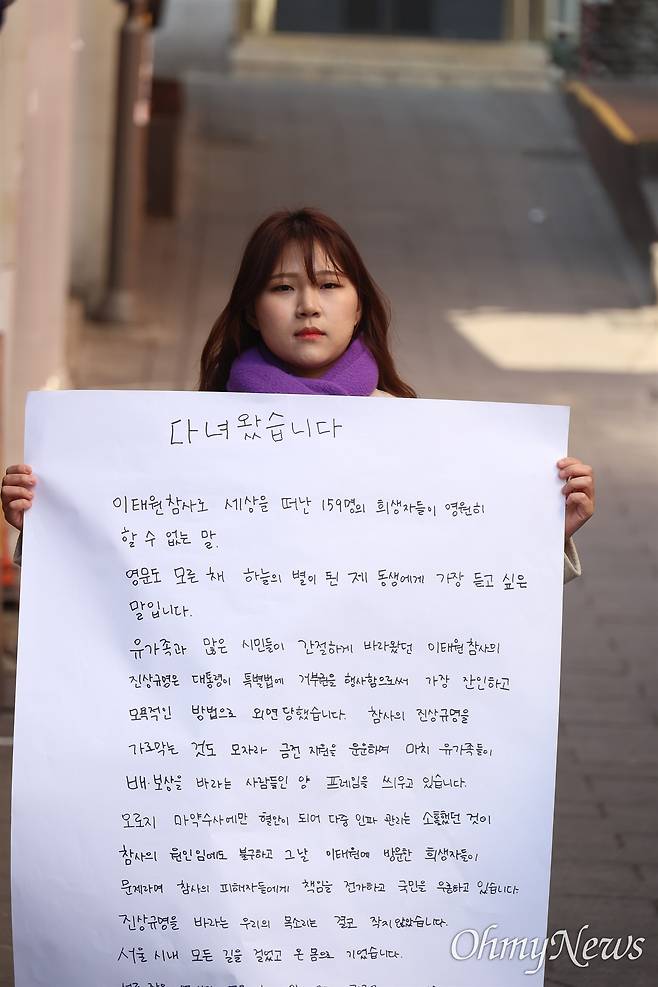 다녀왔습니다
이태원참사로 세상을 떠난 159명의 희생자들이 영원히
할 수 없는 말.
영문도 모른 채 하늘의 별이 된 제 동생에게 가장 듣고 싶은
말입니다.
유가족과 많은 시민들이 간절하게 바라왔던 이태원참사의
진상규명은 대통령이 특별법에 거부권을 행사함으로써 가장 잔인하고
모욕적인 방법으로 외면당했습니다. 참사의 진상규명을
가로막는 것도 모자라 금전 지원을 운운하며 마치 유가족들이
배·보상을 바라는 사람들인 양 프레임을 씌우고 있습니다.
오로지 마약수사에만 혈안이 되어 다중 인파 관리는 소홀했던 것이
참사의 원인임에도 불구하고 그날 이태원에 방문한 희생자들이
문제라며 참사의 피해자들에게 책임을 전가하고 국민을 우롱하고 있습니다.
진상규명을 바라는 우리의 목소리는 결코 작지않았습니다.
서울 시내 모든 길을 걸었고 온 몸으로 기었습니다.
OhmyNews